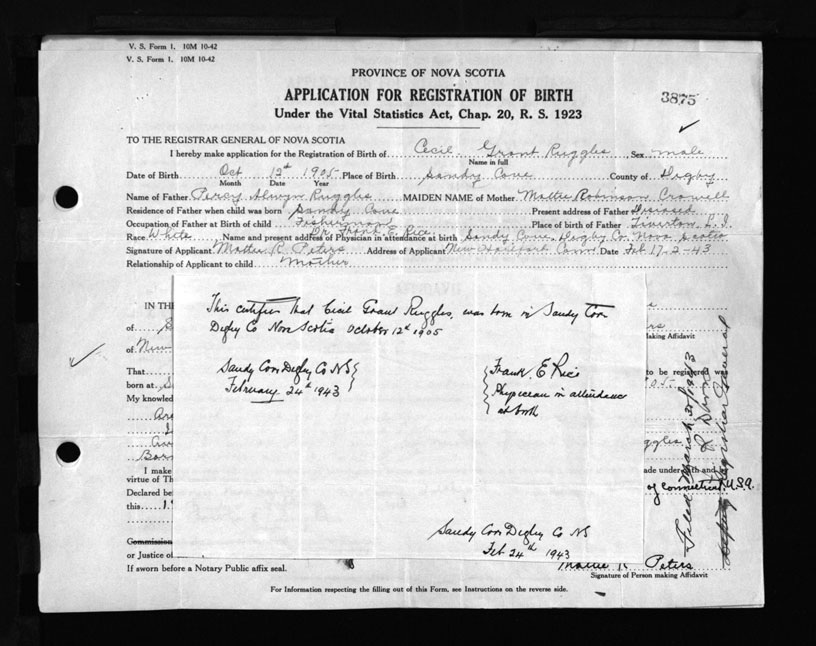 V. S. Form 1. 10M 10-42
V. S. Form 1. 10M 10-42
PROVINCE OF NOVA SCOTIA
APPLICATION FOR REGISTRATION OF BIRTH
3875
Under the Vital Statistics Act, Chap. 20, R. S. 1923
TO THE REGISTRAR GENERAL OF NOVA SCOTIA
I hereby make application for the Registration of Birth of Cecil Grant Ruggles, Sex male
Name in full
Date of Birth Oct 12th 1905 Place of Birth Sandy Cove County of Digby
Month Date Year
Name of Father Percy Alwyn Ruggles MAIDEN NAME of Mother Mattie Robinson Crowell
Residence of Father when child was born Sandy Cove Present address of Father Deceased
Occupation of Father at Birth of child Fisherman Place of birth of Father Tiverton
Dr. Frank E. Rice
Race White Name and present address of Physician in attendance at birth Sandy Cove Digby Co Nova Scotia
Signature of Applicant Mattie R. Peters Address of Applicant New Conn Date Feb 17-2-43
Relationship of Applicant to child Mother
This certifies that Cecil Grant Ruggles, was born in Sandy Cove
Digby Co Nova Scotia October 12th 1905
Sandy Cove Digby Co NS
February 24th 1943
Frank E Rice
Physician in attendance
at birth
Sandy Cove Digby Co NS
Feb 24th 1943
IN THE
of
of New
making Affidavit
That
to be registered was
born at
905
My knowledge
ggles
I make
ade under oath and
virtue of Th
of Connecticut, U.S.A.
Declared be
this
Commissioner
or Justice of
If sworn before a Notary Public affix seal.
Mattie R. Peters
Signature of Person making Affidavit
Filed March 1943
Deputy Registrar General
For Information respecting the filling out of this Form, see Instructions on the reverse side.